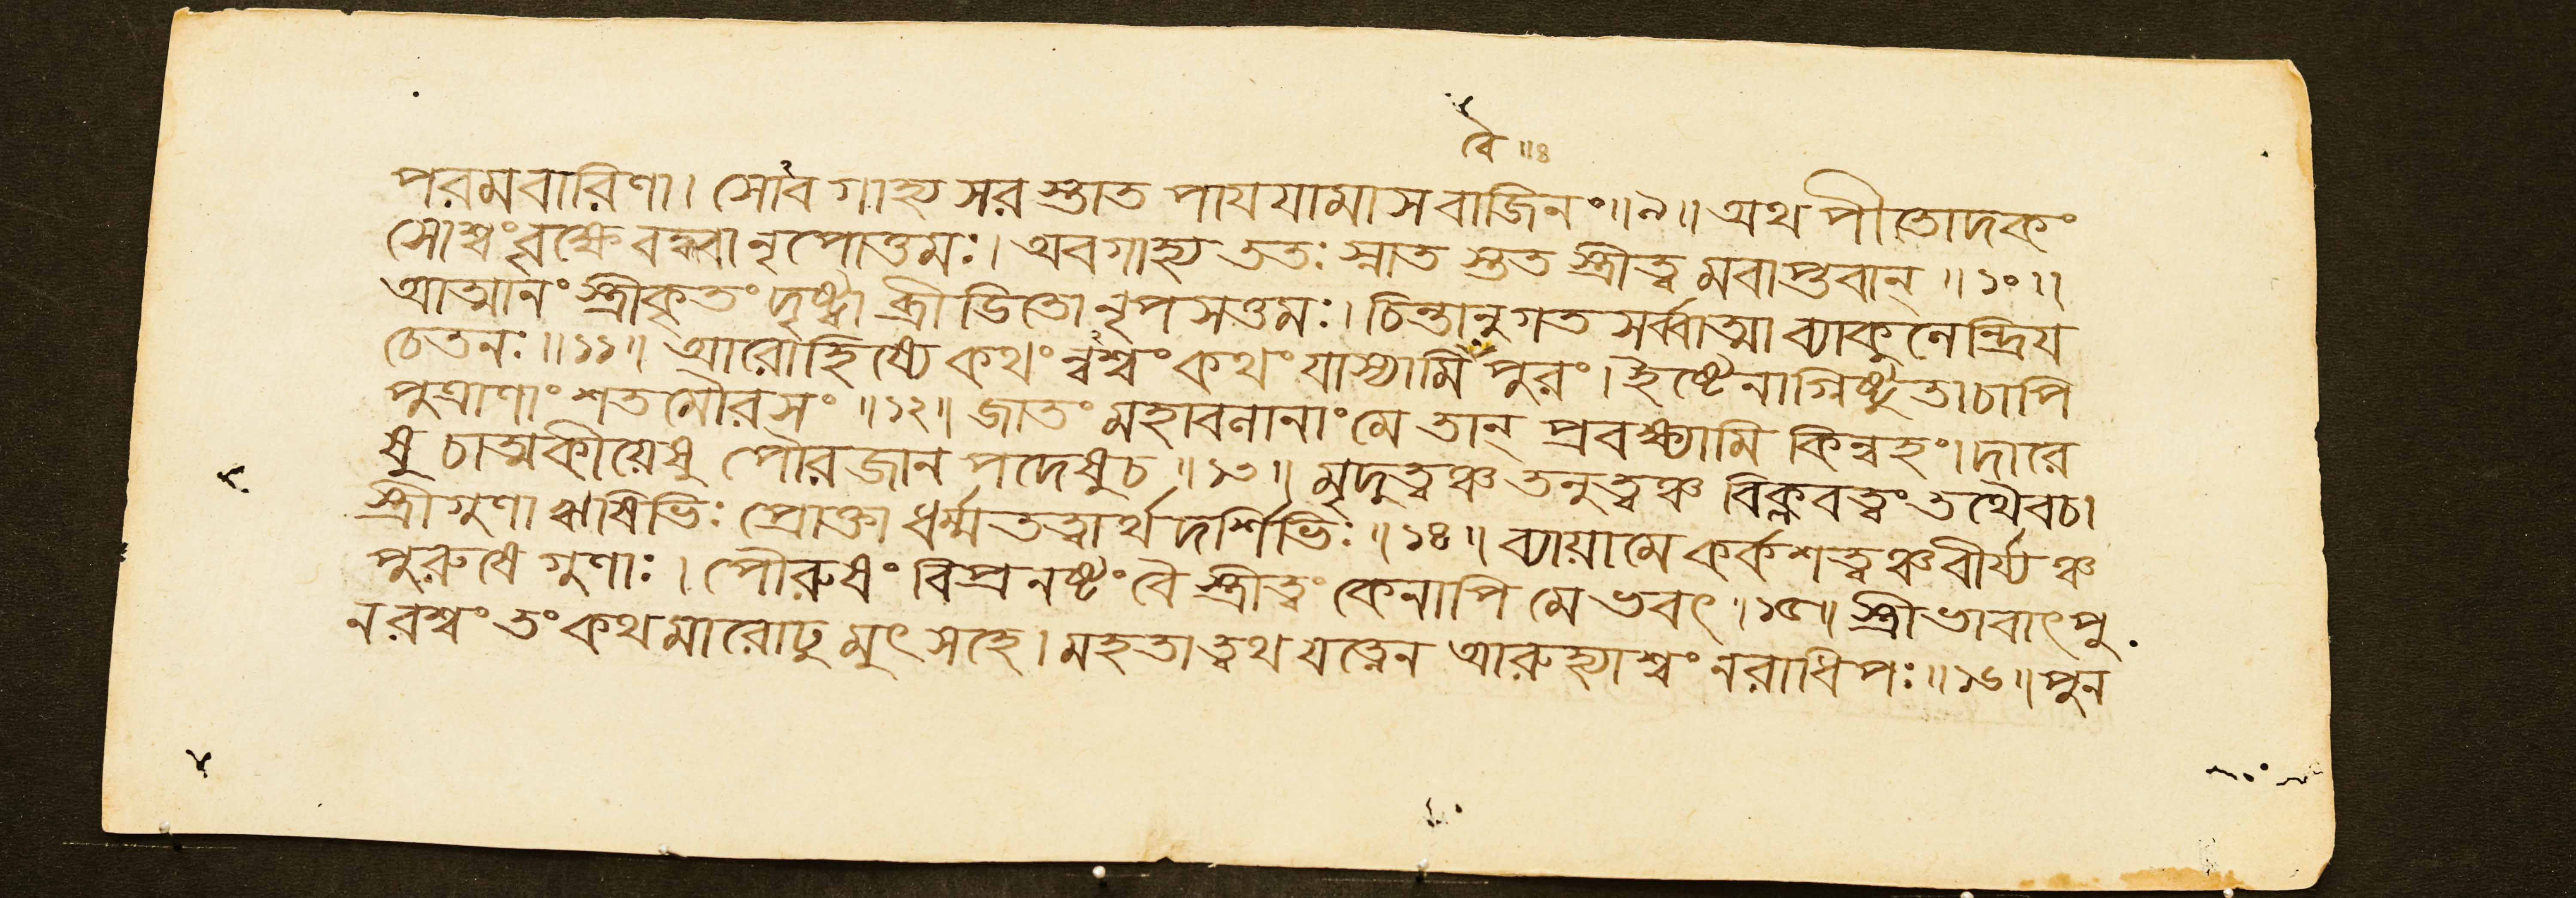 বৈ ॥৪
পরমবারিণা। সোঽবগাহ্য সরস্তাত পাযযামাস বাজিনং॥৯॥ অথ পীতোদকং
সোশ্বং বৃক্ষে বদ্ধ্বা নৃপোত্তমঃ। অবগাহ্য ততঃ স্নাত স্তত স্ত্রীত্বমবাপ্তবান্ ॥১০॥
আত্মানং স্ত্রীকৃতং দৃষ্ট্বা ব্রীডিতো নৃপসত্তমঃ। চিন্তানুগত সর্ব্বাত্মা ব্যাকুলেন্দ্রিয
চেতনঃ॥১১॥ আরোহিষ্যে কথং ন্বশ্বং কথং যাস্যামি পুরং। ইষ্টেনাগ্নিষ্টুতা চাপি
পুত্রাণাং শতমৌরসং ॥১২॥ জাতং মহাবলানাং মে তান্ প্রবক্ষ্যামি কিন্বহং। দারে
ষু চাত্মকীয়েষু পৌরজানপদেষু চ ॥১৩॥ মৃদুত্বঞ্চ তনুত্বঞ্চ বিক্লবত্বং তথৈব চ।
স্ত্রীগুণা ঋষিভিঃ প্রোক্তা ধর্ম্মতত্বার্থদর্শিভিঃ॥১৪॥ ব্যায়ামে কর্কশত্বঞ্চ বীর্য্যঞ্চ
পুরুষে গুণাঃ। পৌরুষং বিপ্রনষ্টং বৈ স্ত্রীত্বং কেনাপি মে ভবৎ।১৫॥ স্ত্রীভাবাৎ পু
নরশ্বং তং কথমারোঢুমুৎসহে। মহতা ত্বথ যত্নেন আরুহ্যাশ্বং নরাধিপঃ॥১৬॥ পুন